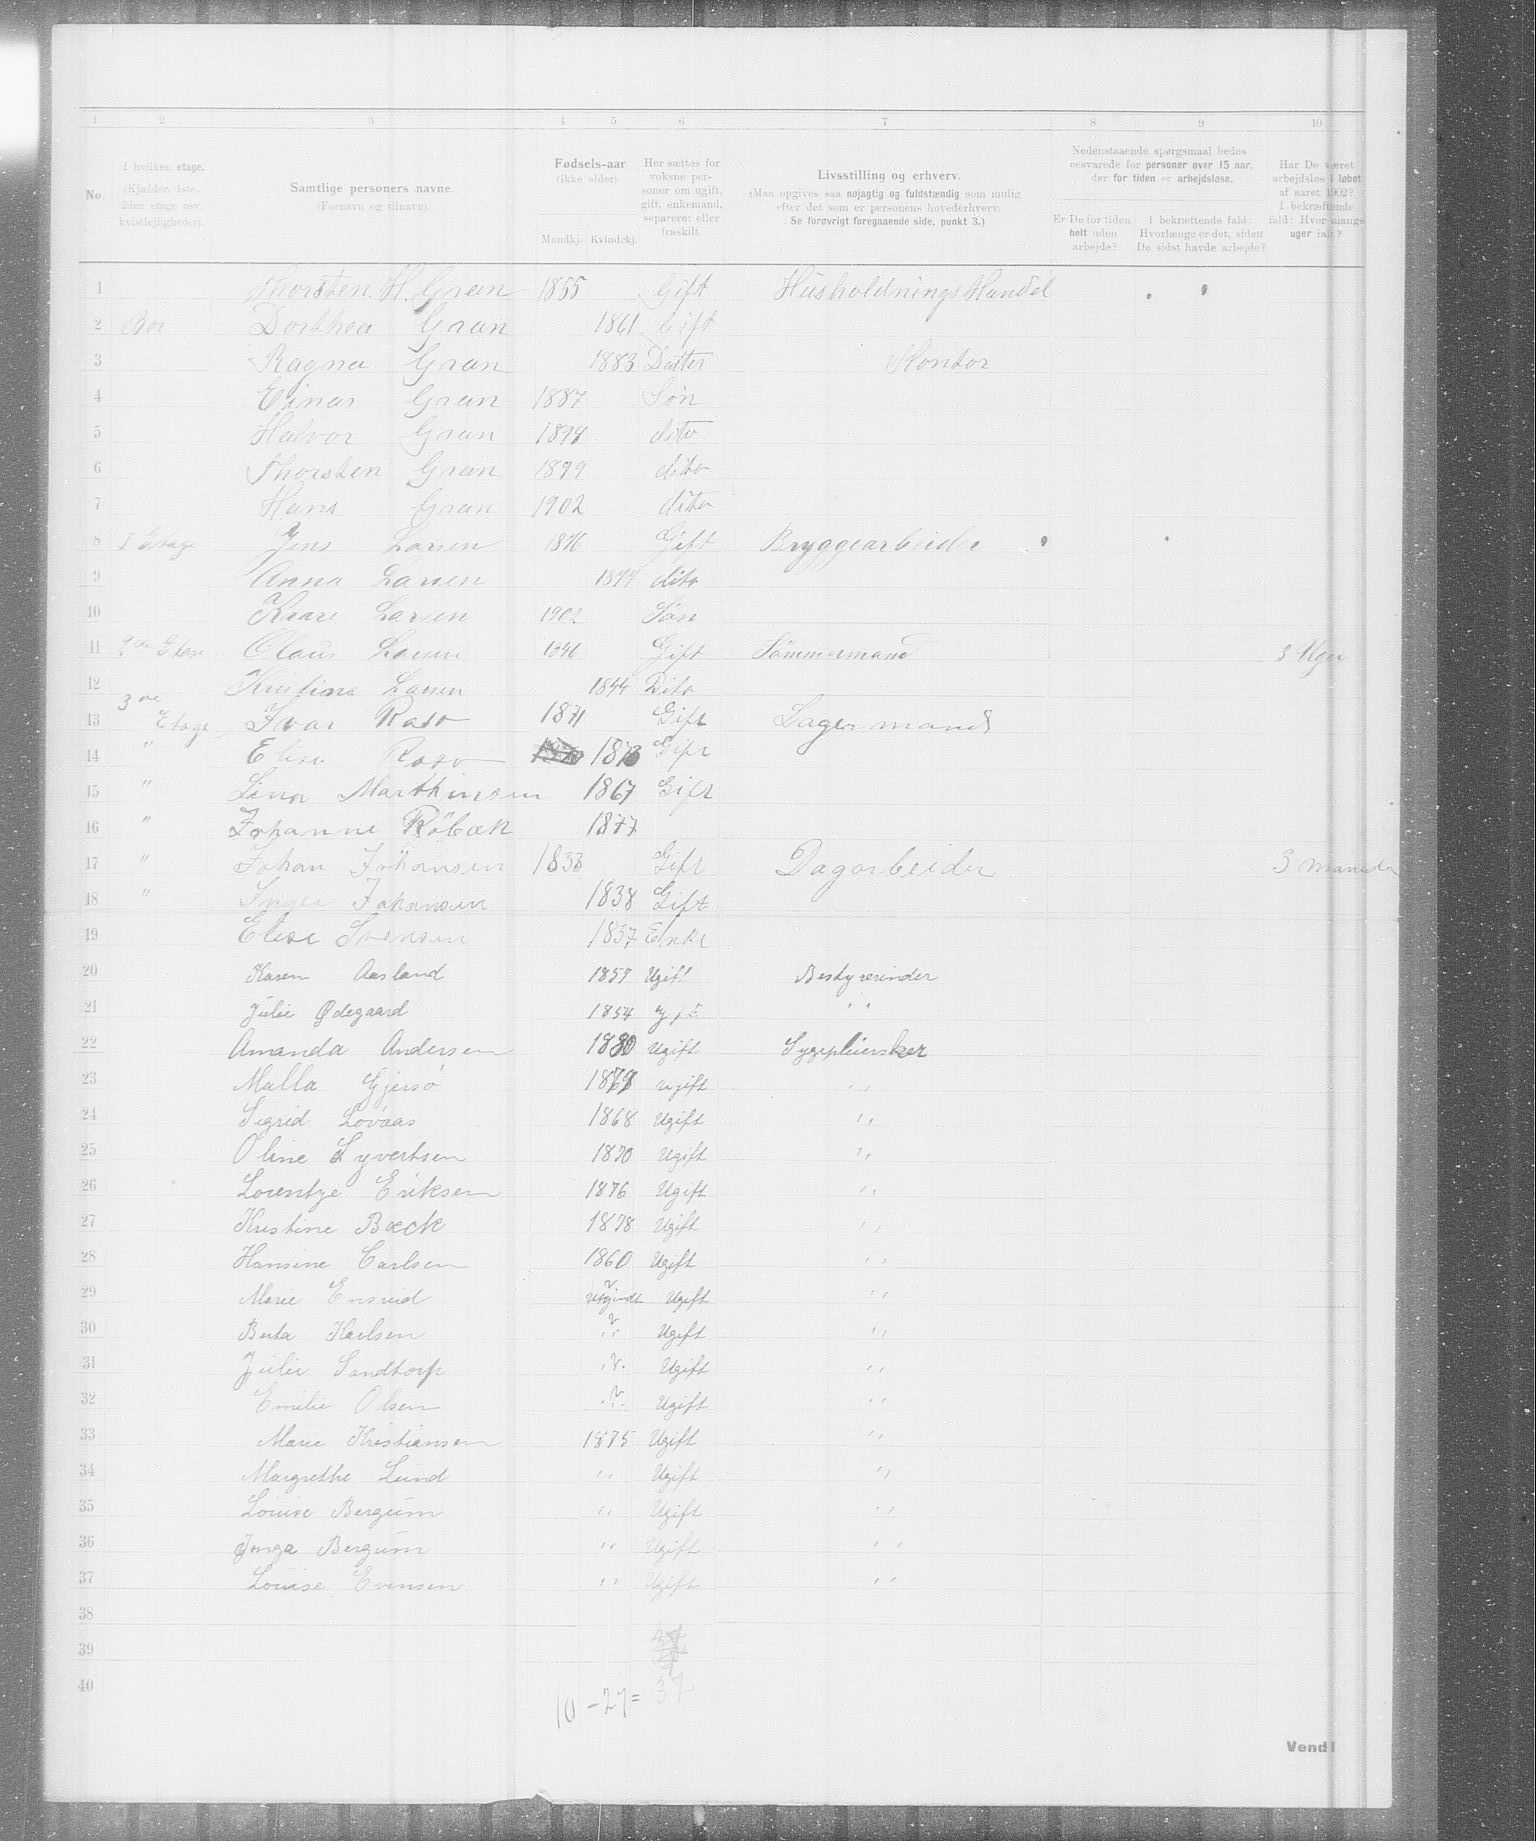 1 2 3 4 5 6 7 8 9 10
No.
I hvilken etage.
(Kjælder, 1ste, 2den etage osv. kvistlejligheder).
Samtlige personers navne.
(Fornavn og tilnavn).
Fødsels-aar
(ikke alder).
Mandkj. Kvindekj.
Her sættes for voksne personer om ugift, gift, enkemand, separeret eller fraskilt.
Livsstilling og erhverv.
(Maa opgives saa nøjagtig og fuldstændig som mulig efter det som er personens hovederhverv.
Se forøvrigt foregaaende side, punkt 3.)
Nedenstaaende spørgsmaal bedes besvarede for personer over 15 aar, der for tiden er arbejdsløse.
Er De for tiden helt uden arbejde?
I bekræftende fald: Hvorlænge er det, siden De sidst havde arbejde?
Har De været arbejdsløs i løbet af aaret 1902? I bekræftende fald: Hvor mange uger ialt?
1 Thorsten. H. Gran 1855 Gift Husholdnings Handel
2 Bor Dorthea Gran 1861 Gift
3 Ragna Gran 1883 Datter Kontor
4 Einar Gran 1887 Søn
5 Halvor Gran 1898 dito
6 Thorsten Gran 1899 dito
7 Hans Gran 1902 dito
8 1 Etage Jens Larsen 1876 Gift Bryggearbeider
9 Anna Larsen 1877 dito
10 Kaare Larsen 1902 Søn
11 2den Etage Claus Larsen 1846 Gift Tømmermand 3 Uger
12 Kristina Larsen 1844 Dito
13 3de Etage Ivar Raso 1871 Gift Lagermand
14 " Elise Raso 1873 Gift
15 " Lina Marthinsen 1867 Gift
16 " Johanne Röbæk 1877
17 " Johan Johansen 1833 Gift Dagarbeider 3 maneder
18 " Inger Johansen 1838 Gift
19 Elise Sørensen 1837 Enke
20 Karen Aasland 1857 Ugift Bestyrerinder
21 Julie Ødegaard 1854 Ugift " "
22 Amanda Andersen 1880 Ugift Sygepleiersker
23 Malla Gjersø 1869 ugift " "
24 Sigrid Lovaas 1868 Ugift " "
25 Oline Syvertsen 1870 Ugift " "
26 Lorentze Eriksen 1876 Ugift " "
27 Kristine Bæck 1878 Ugift " "
28 Hansine Carlsen 1860 Ugift " "
29 Marie Ensrud ? Ugift " "
30 Berta Karlsen ? " Ugift " "
31 Julie Sandtorp ? " Ugift " "
32 Emilie Olsen ? " Ugift " "
33 Marie Kristiansen 1875 Ugift " "
34 Margrethe Lund " Ugift " "
35 Louise Bergum " Ugift " "
36 Inga Bergum " Ugift " "
37 Louise Evensen " Ugift " "
38
39
40
10 - 27 = 37
Vend!